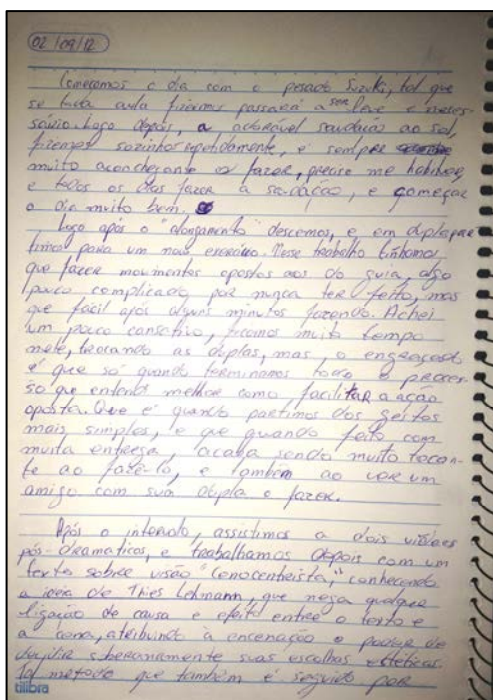 02/09/12
Começamos o dia com o pesado Suzuki, tal que
se toda aula fizermos passará a ser leve e neces-
sário. Logo depois, a adorável saudação ao sol,
fizemos sozinhos repetidamente, é sempre
muito aconchegante o fazer, preciso me habituar
e todos os dias fazer a saudação, e começar
o dia muito bem.
Logo após o "alongamento" descemos, e em dupla par
timos para um novo exercício. Nesse trabalho tínhamos
que fazer movimentos opostos aos do guia, algo
pouco complicado por nunca ter feito, mas
que fácil após alguns minutos fazendo. Achei
um pouco cansativo, ficamos muito tempo
nele, trocando as duplas, mas, o engraçado
é que só quando terminamos todo o proces-
so que entendi melhor como facilitar a ação
oposta. Que é quando partimos dos gestos
mais simples, e que quando feito com
muita entrega, acaba sendo muito tocan-
te ao fazê-lo, e também ao ver um
amigo com sua dupla o fazer.
Após o intervalo, assistimos a dois vídeos
pós-dramaticos, e trabalhamos depois com um
texto sobre visão "cenocentrista," conhecendo
a ideia de Thies Lehmann, que nega qualquer
ligação de causa e efeito entre o texto e
a cena, atribuindo à encenação o poder de
decidir soberanamente suas escolhas estéticas.
Tal metodo que também é seguido por
tilibra